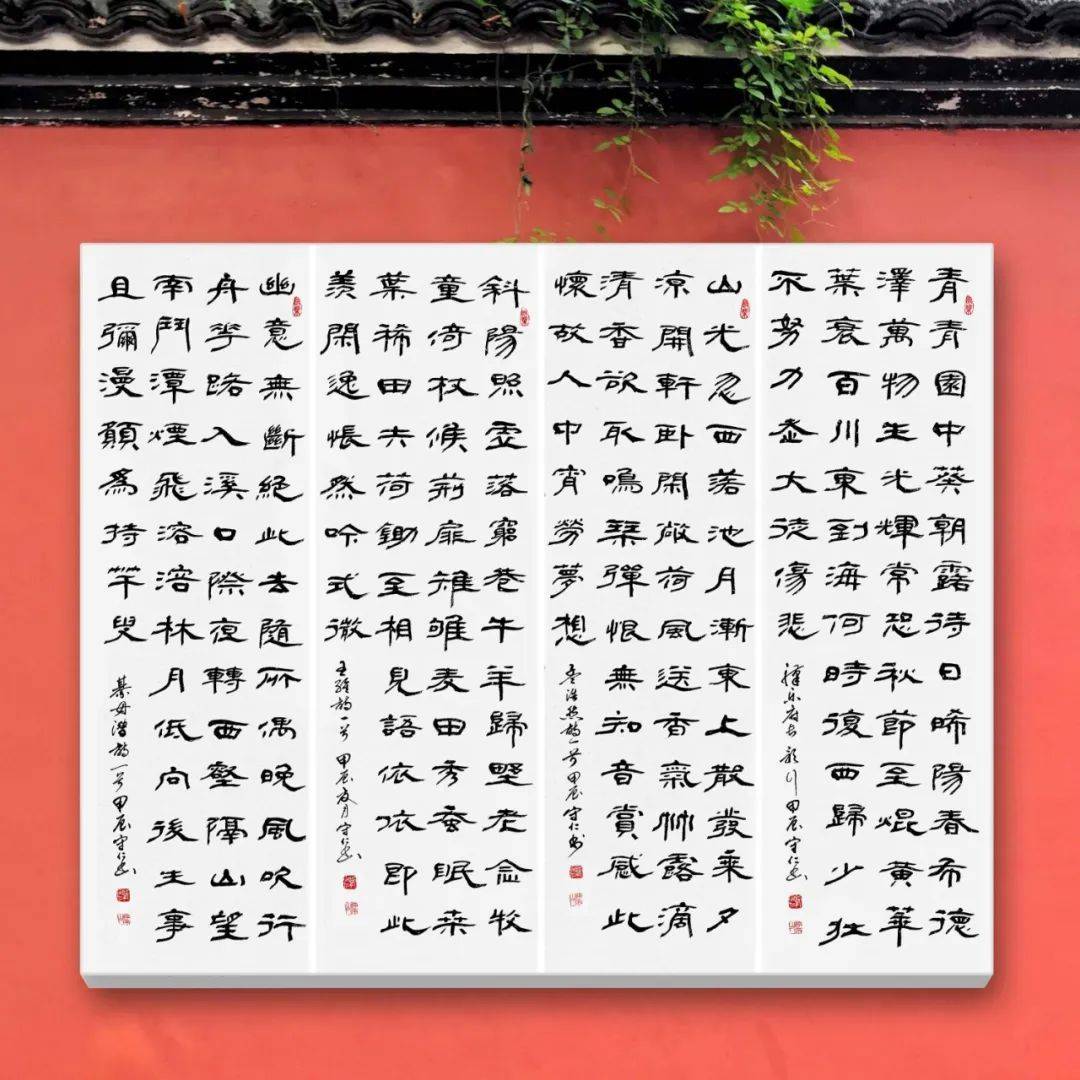 青青園中葵朝露待日晞陽春希德
澤萬物生光輝常恐秋節至焜黃華
葉衰百川東到海何時復西歸少壯
不努力老大徒傷悲
漢樂府長歌行 甲辰守仁書
山光忽西落池月漸東上散發乘夕
涼開軒卧閑敞荷風送香氣竹露滴
清香欲取鳴琴彈恨無知音賞感此
懷故人中宵勞夢想
孟浩然詩一首 甲辰守仁書
斜陽照虛落窮巷牛羊歸野老念牧
童倚杖候荊扉雉雊麥田秀蚕眠桒
葉稀田夫荷鋤至相見語依依即此
羨閑逸悵然吟式微
王維詩一首 甲辰夏月守仁書
幽意無斷絕此去隨所偶晚風吹行
舟花路入溪口際夜轉西壑隔山望
南鬥潭煙飛溶溶林月低向後生事
且彌漫願為持竿叟
綦毋潛詩一首 甲辰守仁書